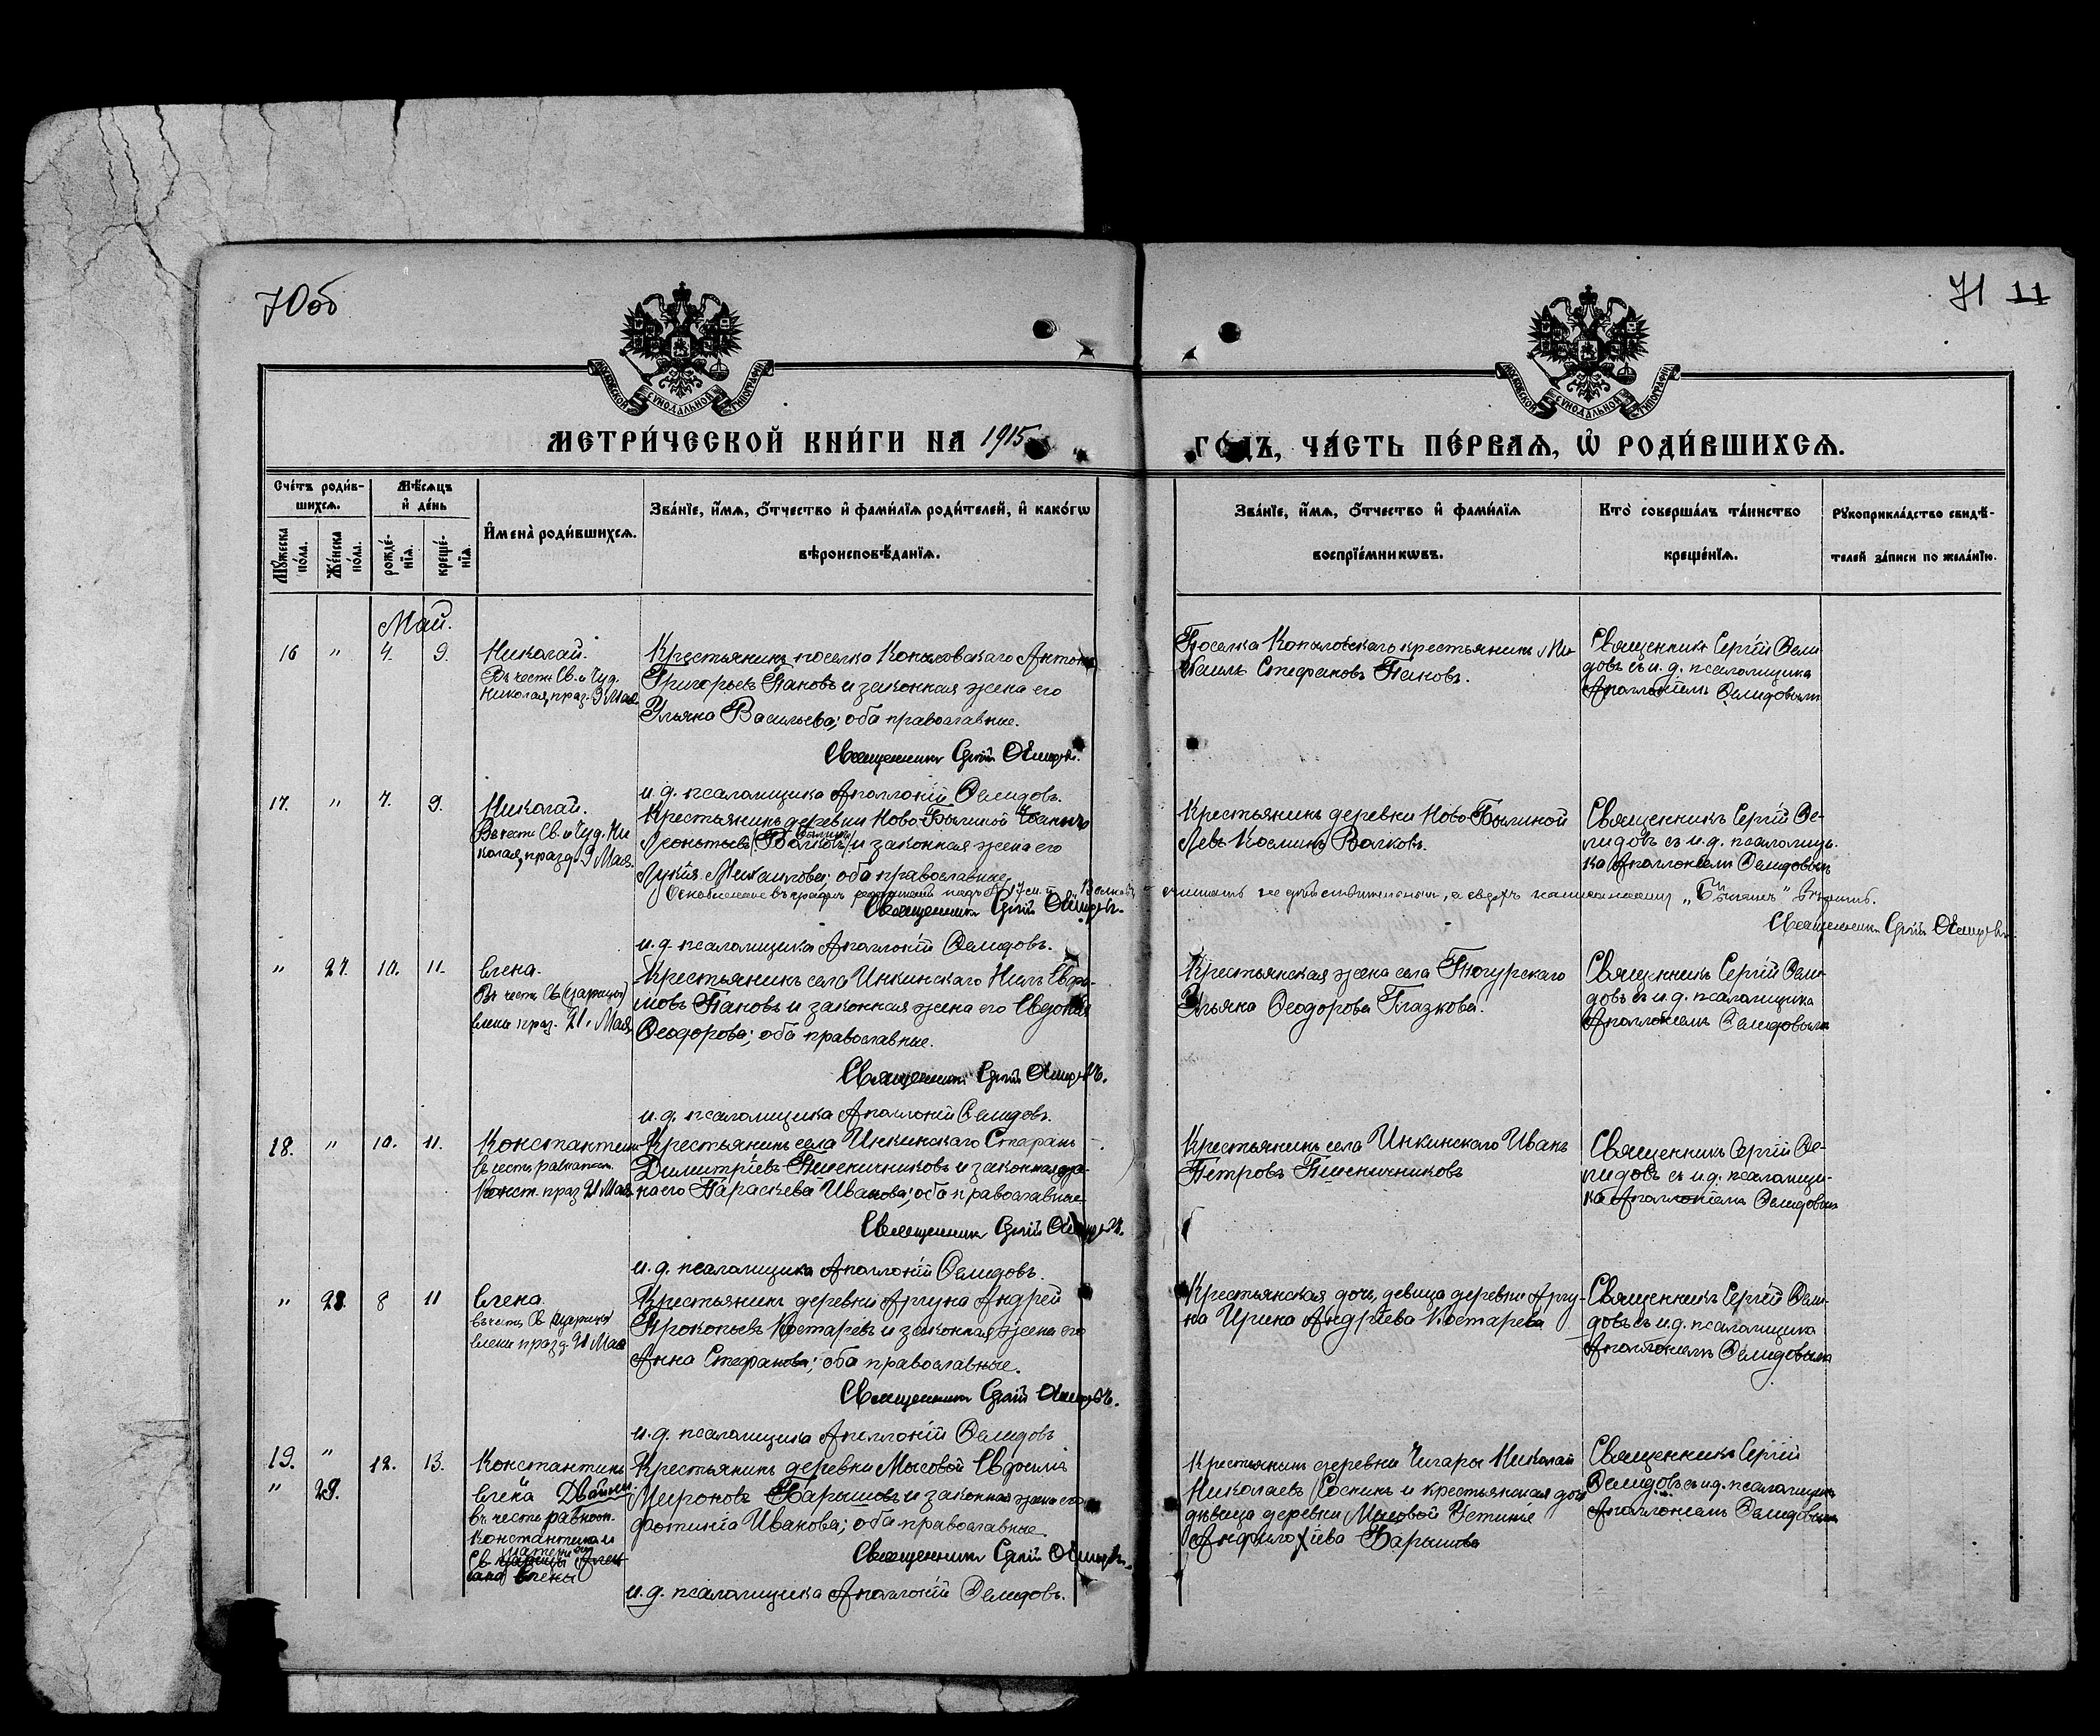 70об
71 11
МОСКОВСКОЙ СѴНОДАЛЬНОЙ ТИПОГРАФІИ
МОСКОВСКОЙ СѴНОДАЛЬНОЙ ТИПОГРАФІИ
МЕТРИ́ЧЕСКОЙ КНИ́ГИ НА 1915
ГО́ДЪ, ЧА́СТЬ ПЕ́РВАѦ, Ѡ҆ РОДИ́ВШИХСѦ.
Сче́тъ роди́в-
шихсѧ.
Мѣ́сѧцъ
и҆ де́нь
Мꙋ́жеска по́ла.
Же́нска по́ла.
рожде́-
нїѧ.
креще́-
нїѧ.
И҆мена̀ роди́вшихсѧ.
Зва́нїе, и҆́мѧ, ѻ҆́тчество и҆ фами́лїѧ роди́телей, и҆ како́гѡ
вѣроисповѣ́данїѧ.
Зва́нїе, и҆́мѧ, ѻ҆́тчество и҆ фами́лїѧ
воспрїе́мникѡвъ.
Кто̀ соверша́лъ та́инство
креще́нїѧ.
Рꙋкоприкла́дство свидѣ́-
телей за́писи по жела́нїю.
Май.
16 " 4. 9.
Николай.
Въ честь Св. и Чуд.
Николая, праз. 9 Мая.
Крестьянинъ поселка Копыловскаго Антонъ
Григорьевъ Пановъ и законная жена его
Ульяна Васильева; оба православные.
Священникъ Сергій Демидовъ.
и.д. псаломщика Аполлоній Демидовъ.
Поселка Копыловскаго крестьянинъ Ми-
хаилъ Стефановъ Пановъ.
Священникъ Сергій Деми-
довъ съ и.д. псаломщика
Аполлоніемъ Демидовымъ
17. " 7. 9.
Николай.
Въ честь Св. и Чуд. Ни
колая, празд. 9 Мая.
Крестьянинъ деревни Ново-Былиной
Леонтьевъ и законная жена его
Лукія Михаилова; оба православные
Священникъ Сергій Демидовъ.
и.д. псаломщика Аполлоній Демидовъ.
Крестьянинъ деревни Ново-Былиной
Левъ Космин Волковъ.
считать не дѣйствительнымъ, а сверхъ написанному
Священникъ Сергій Демидовъ.
Священникъ Сергій Де-
мидовъ съ и.д. псаломщи-
ка Аполлоніемъ Демидовымъ
" 27. 10. 11.
Елена.
Въ честь Св. (царицы)
Елены праз. 21. Мая
Крестьянинъ села Инкинскаго Нилъ Евфи-
мовъ Пановъ и законная жена его Евдокія
Ѳеодорова; оба православные.
Священникъ Сергій Демидовъ.
и.д. псаломщика Аполлоній Демидовъ.
Крестьянская жена села Тогурскаго
Ульяна Ѳеодорова Глазкова.
Священникъ Сергій Деми-
довъ съ и.д. псаломщика
Аполлоніемъ Демидовымъ
18. " 10. 11.
Константинъ
Въ честь равноап.
Конст. праз. 21 Мая
Крестьянинъ села Инкинскаго
Димитріевъ Пшеничниковъ и законная же-
на его Параскева Иванова; оба православные
Священникъ Сергій Демидовъ.
и.д. псаломщика Аполлоній Демидовъ.
Крестьянинъ села Инкинскаго Иванъ
Петровъ Пшеничниковъ
Священникъ Сергій Де-
мидовъ съ и.д. псаломщи-
ка Аполлоніемъ Демидовымъ
" 28. 8 11
Елена.
Въ честь Св. (царицы)
Елены празд. 21 Мая
Крестьянинъ деревни Аргуна Андрей
Прокопьевъ Костаревъ и законная жена его
Анна Стефанова; оба православные.
Священникъ Сергій Демидовъ.
и.д. псаломщика Аполлоній Демидовъ
Крестьянская дочь, девица деревни Аргу-
на Ирина Андрѣева Костарева
Священникъ Сергій Деми-
довъ съ и.д. псаломщика
Аполлоніемъ Демидовымъ
19. " 12. 13.
" 29.
Константинъ
и
Елена Двойни.
въ честь равноап.
Константина и
матери его
Елены
Крестьянинъ деревни Мысовой
Мироновъ Барышовъ и законная жена его
Фотинія Иванова; оба православные
Священникъ Сергій Демидовъ.
и.д. псаломщика Аполлоній Демидовъ.
Крестьянинъ деревни Чигары Николай
Николаевъ Соснинъ и крестьянская дочь
дѣвица деревни Мысовой Устинія
Барышова
Священникъ Сергій
Демидовъ съ и.д. псаломщика
Аполлоніемъ Демидовымъ